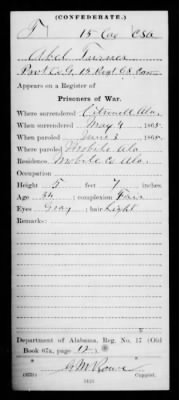 (CONFEDERATE.)
T 15 Cav CSA
Abel Turner
Pvt Co. G. 15 Regt C.S. Cav
Appears on a Register of
Prisoners of War.
Where surrendered Citronell Ala.
When surrendered May 4, 1865.
When paroled June 3, 1865.
Where paroled Mobile Ala
Residence Mobile Co Ala.
Occupation
Height 5 feet 7 inches
Age 34; complexion Fair
Eyes Gray; hair Light
Remarks:
Department of Alabama, Reg. No. 17 (Old
Book 67a, page 12
G M Rowe
Copyist.